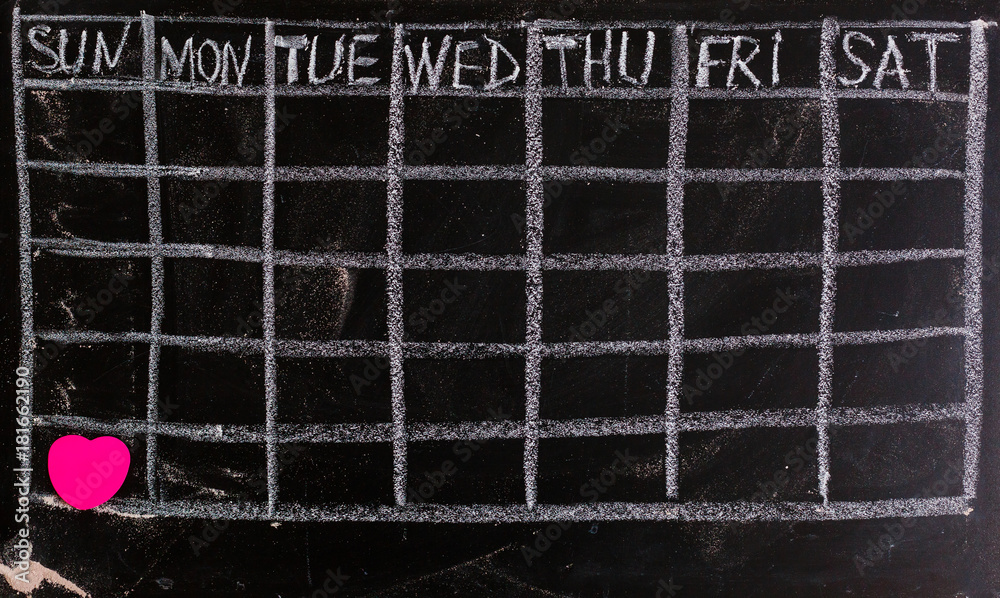 SUN MON TUE WED THU FRI SAT
Adobe Stock | #181662190